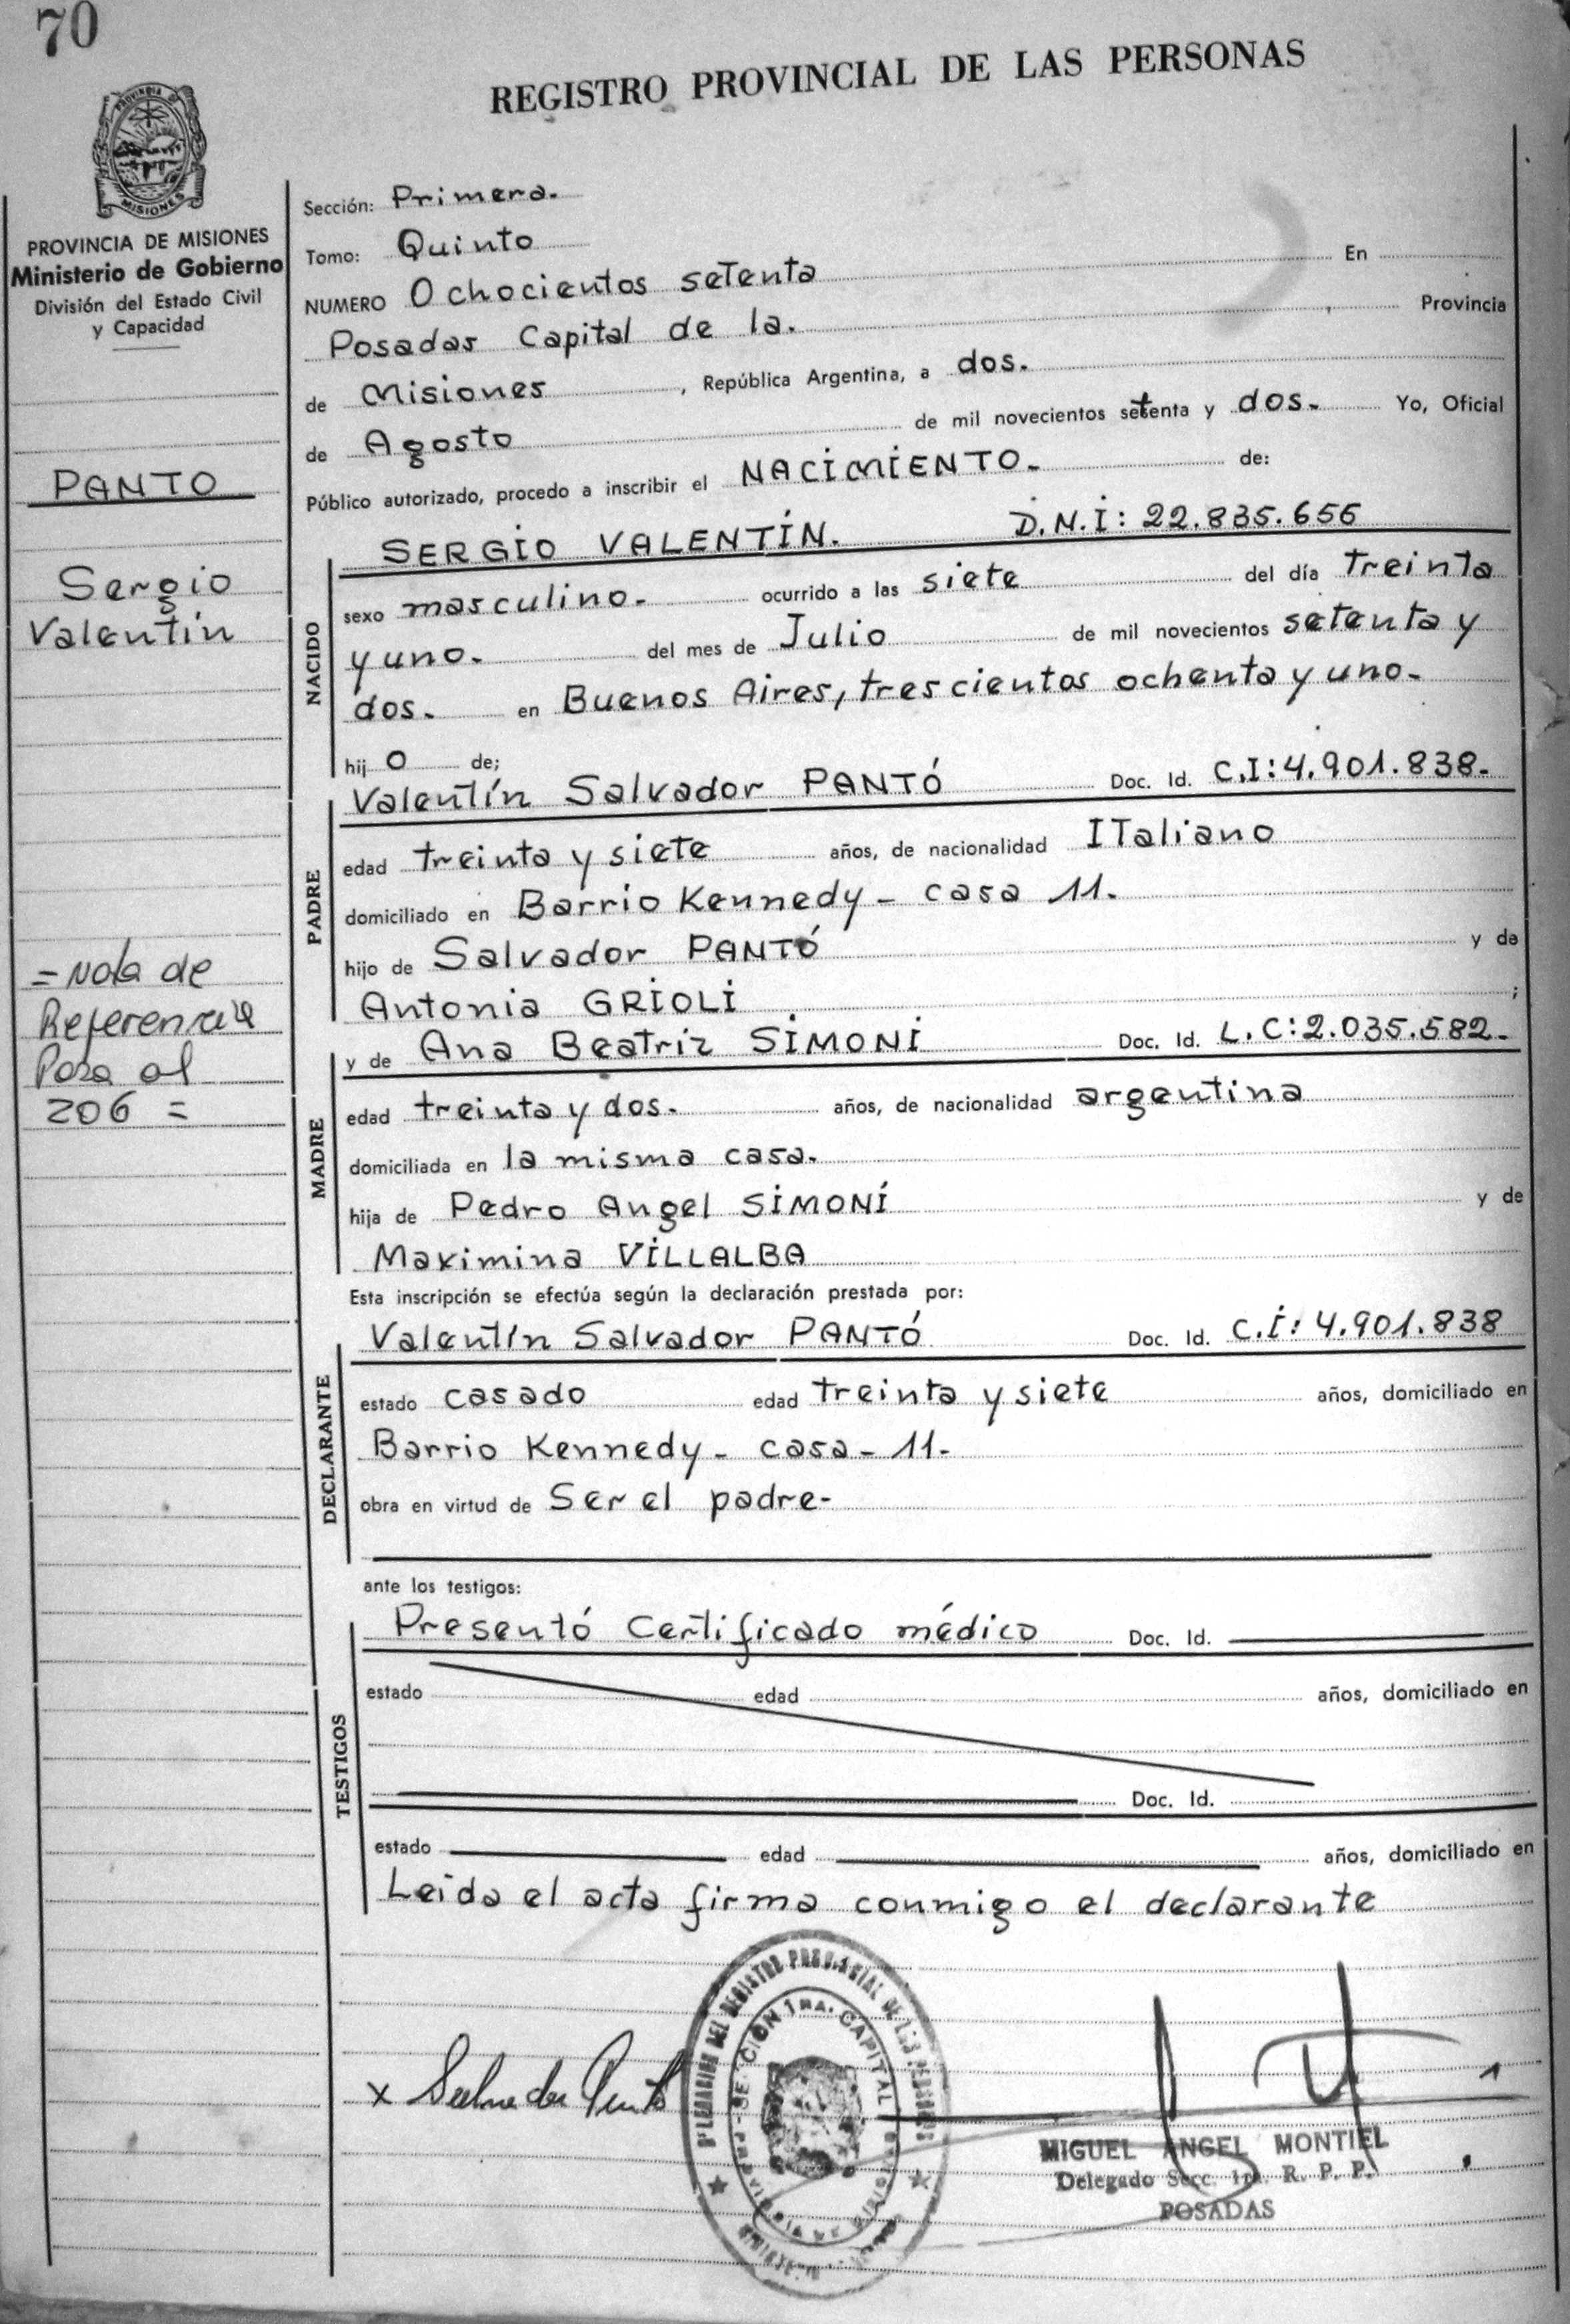 70
REGISTRO PROVINCIAL DE LAS PERSONAS
PROVINCIA DE
MISIONES
PROVINCIA DE MISIONES
Ministerio de Gobierno
División del Estado Civil
y Capacidad
PANTO
Sergio
Valentín
= Nota de
Referencia
Pasa al
206 =
Sección: Primera.
Tomo: Quinto
NUMERO Ochocientos setenta En
Posadas Capital de la. Provincia
de Misiones, República Argentina, a dos.
de Agosto de mil novecientos setenta y dos. Yo, Oficial
Público autorizado, procedo a inscribir el NACIMIENTO. de:
NACIDO
SERGIO VALENTÍN. D.N.I: 22.835.656
sexo masculino. ocurrido a las siete del día treinta
y uno. del mes de Julio de mil novecientos setenta y
dos. en Buenos Aires, trescientos ochenta y uno.
hijo de;
PADRE
Valentín Salvador PANTÓ Doc. Id. C.I: 4.901.838.
edad treinta y siete años, de nacionalidad ITaliano
domiciliado en Barrio Kennedy - casa 11.
hijo de Salvador PANTÓ y de
Antonia GRIOLI ;
MADRE
y de Ana Beatriz SIMONI Doc. Id. L.C: 2.035.582.
edad treinta y dos. años, de nacionalidad argentina
domiciliada en la misma casa.
hija de Pedro Angel SIMONÍ y de
Maximina VILLALBA
Esta inscripción se efectúa según la declaración prestada por:
DECLARANTE
Valentín Salvador PANTÓ Doc. Id. C.I: 4.901.838
estado casado edad treinta y siete años, domiciliado en
Barrio Kennedy - casa - 11-
obra en virtud de Ser el padre-
ante los testigos:
TESTIGOS
Presentó Certificado médico Doc. Id.
estado edad años, domiciliado en
Doc. Id.
estado edad años, domiciliado en
Leida el acta firma conmigo el declarante
x Salvador Panto
DELEGACION DEL REGISTRO PROVINCIAL DE LAS PERSONAS
SECCION 1RA. CAPITAL
MIGUEL ANGEL MONTIEL
Delegado Secc. 1ra. R. P. P.
POSADAS